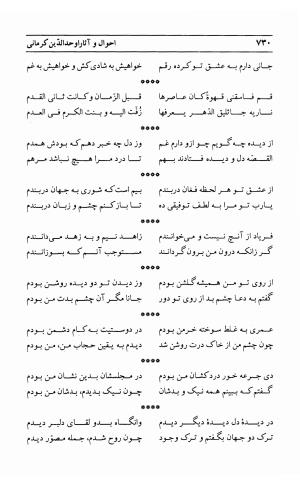 ۷۳۰ احوال و آثار اوحدالدّین کرمانی
جانی دارم به عشق تو کرده رقم خواهیش به شادی کش و خواهیش به غم
****
قم فاسقنی قهوة کان عاصرها قبل الزّمان و کانت ثانی القدم
ناریه جاثلیق الذهر یعرفها زفّت الیه و بنت الکرم فی العدم
****
از دیده چه گویم چو ازو دارم غم وز دل چه خبر دهم که بودش همدم
القصّه دل و دیده فتادند بهم تا درد مرا هیچ نباشد مرهم
****
از عشق تو هر لحظه فغان دربندم بیم است که شوری به جهان دربندم
یارب تو مرا به لطف توفیقی ده تا باز کنم چشم و زبان دربندم
****
فریاد از آنچ نیست و می‌خوانندم زاهد نیم و به زهد می‌دانندم
گر زانکه درون من برون گردانند مستوجب آنم که بسوزانندم
****
از روی تو من همیشه گلشن بودم وز دیدن تو دو دیده روشن بودم
گفتم به دعا چشم بد از روی تو دور جانا مگر آن چشم بدت من بودم
****
عمری به غلط سوخته خرمن بودم در دوستیت به کام دشمن بودم
چون چشم من از خاک درت روشن شد دیدم به یقین حجاب من، من بودم
****
دی جرعه خور دردکشان من بودم در مجلسشان بدین نشان من بودم
گفتم که ببینم همه نیک و بدشان چون نیک بدیدم، بدشان من بودم
****
در دیدهٔ دل دیدهٔ دیگر دیدم وانگاه بدو لقای دلبر دیدم
ترک دو جهان بگفتم و ترک وجود چون روح شدم، جمله مصوّر دیدم